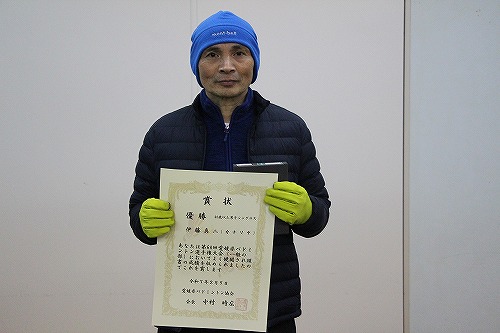 mont-bell
賞状
優勝
伊藤真人(カネリヤ)
あなたは第68回愛媛県バドミ
ントン選手権大会(一般の
部)において よく健闘され頭
書の成績を収められましたの
でこれを賞します
愛媛県バドミントン協会
会長 中村 時広